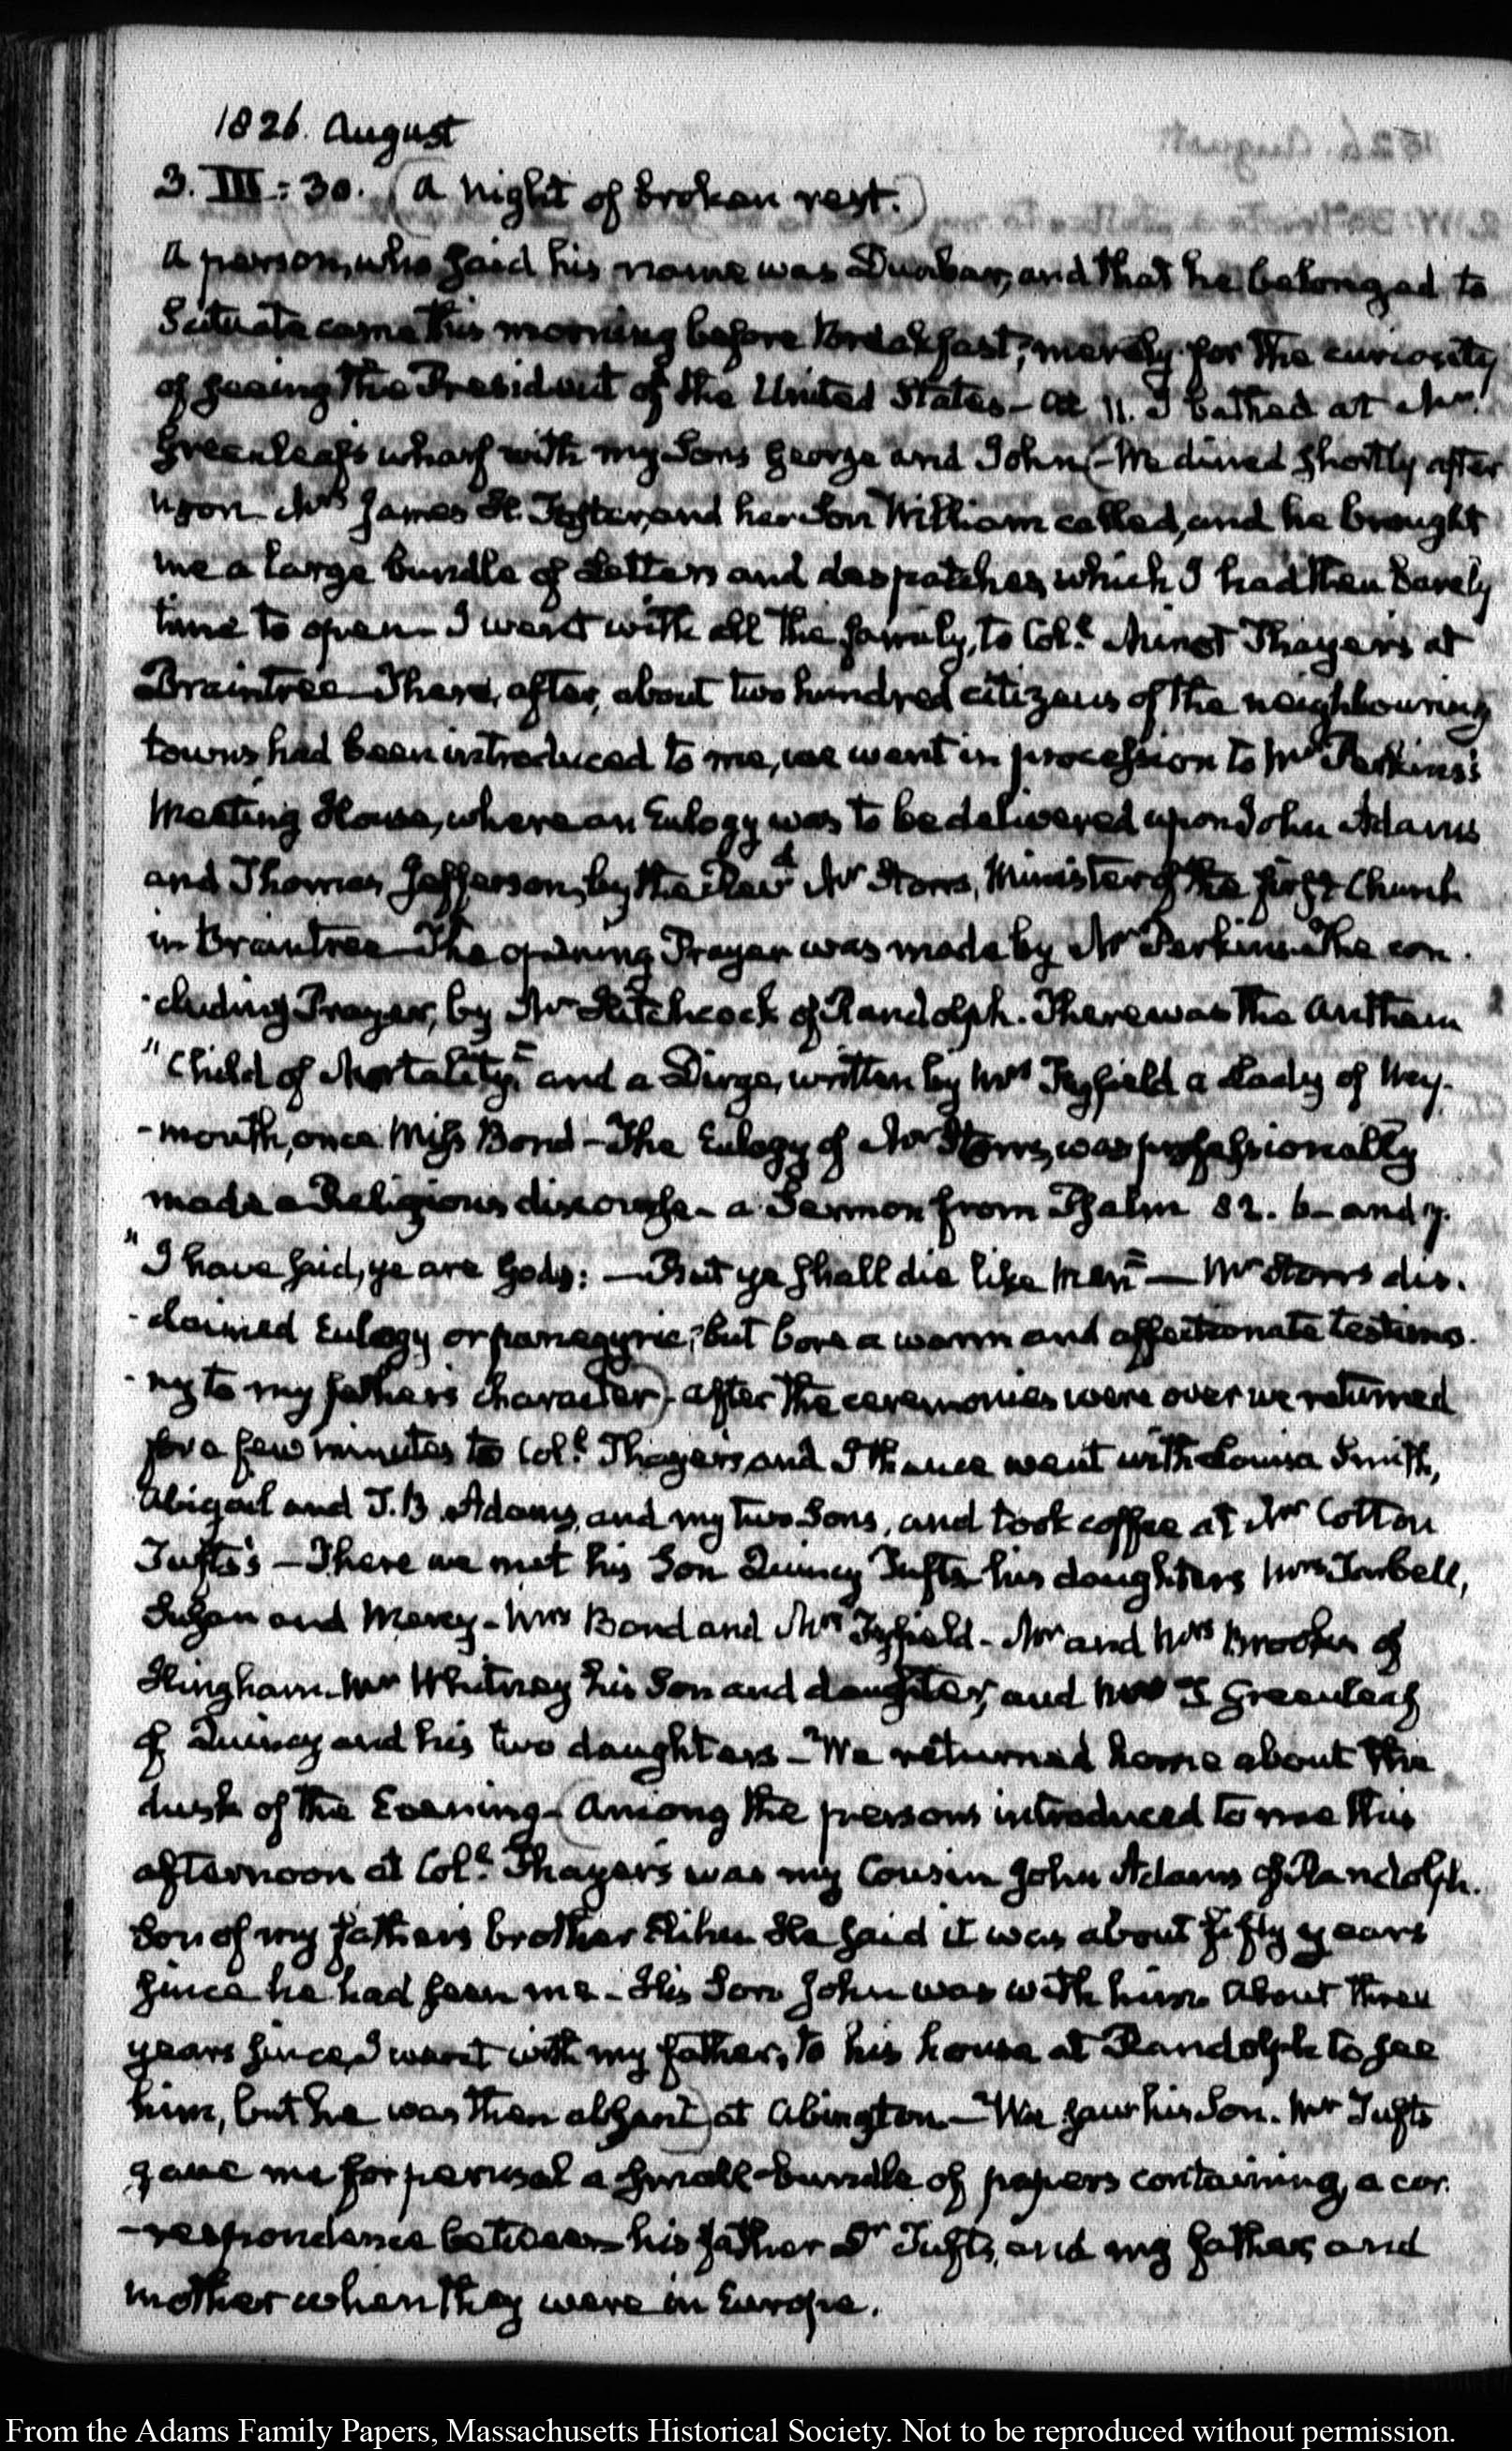 1826. August
3. III: 30. (A night of broken rest.)
A person, who said his name was Dunbar, and that he belonged to
Scituate came this morning before Breakfast, merely for the curiosity
of seeing the President of the United States— At 11. I bathed at Mr.
Greenleaf's wharf with my Sons George and John (— We dined shortly after
noon— Mrs James H. Foster, and her Son William called, and he brought
me a large bundle of Letters and despatches, which I had then barely
time to open— I went with all the family, to Coll. Minot Thayer's at
Braintree— There, after, about two hundred citizens of the neighbouring
towns had been introduced to me, we went in procession to Mr Perkins's
Meeting House, where an Eulogy was to be delivered upon John Adams
and Thomas Jefferson, by the Revd. Mr Storrs, Minister of the first Church
in Braintree— The opening Prayer was made by Mr Perkins— The con-
-cluding Prayer, by Mr Hitchcock of Randolph. There was the Anthem
"Child of Mortality," and a Dirge, written by Mrs Fifield a Lady of Wey-
-mouth, once Miss Bond— The Eulogy of Mr Storrs, was professionally
made a Religious discourse— a Sermon from Psalm 82. 6— and 7.
"I have said, ye are Gods: —But ye shall die like Men"— Mr Storrs dis-
-claimed Eulogy or panegyric; but bore a warm and affectionate testimo-
-ny to my father's character)— After the ceremonies were over we returned
for a few minutes to Coll. Thayer's, and I thence went with Louisa Smith,
Abigail and T. B. Adams, and my two Sons, and took coffee at Mr Cotton
Tufts's— There we met his Son Quincy Tufts his daughters Mrs Tarbell,
Susan and Mercy— Mrs Bond and Mrs Fifield— Mr and Mrs Brooks of
Hingham— Mr Whitney his Son and daughter, and T Greenleaf
of Quincy and his two daughters— We returned home about the
dusk of the Evening— (Among the persons introduced to me this
afternoon at Coll. Thayer's was my Cousin John Adams of Randolph.
Son of my father's brother Elihu— He said it was about fifty years
since he had seen me— His Son John was with him. About three
years since, I went with my father, to his house at Randolph to see
him, but he was then absent) at Abington— We saw his Son. Mr Tufts
gave me for perusal a small bundle of papers containing, a cor-
-respondence between his father Dr Tufts, and my father, and
mother when they were in Europe.
From the Adams Family Papers, Massachusetts Historical Society. Not to be reproduced without permission.